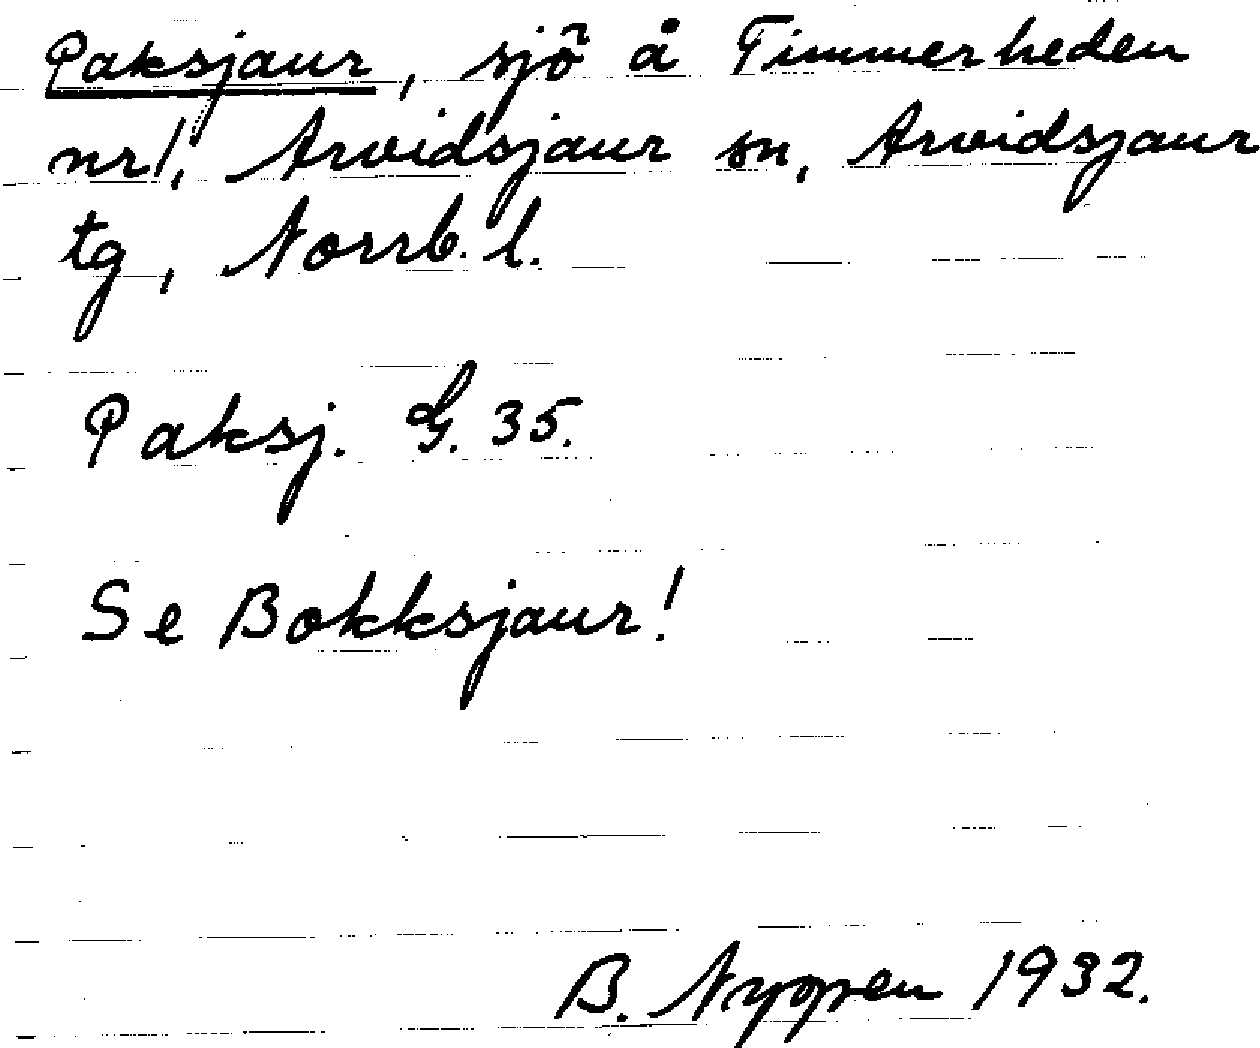 Paksjaur, sjö å Timmerheden
nr 1, Arvidsjaur sn, Arvidsjaur
tg, Norrb. l.
Paksj. G. 35.
Se Bokksjaur!
B. Nyppen 1932.